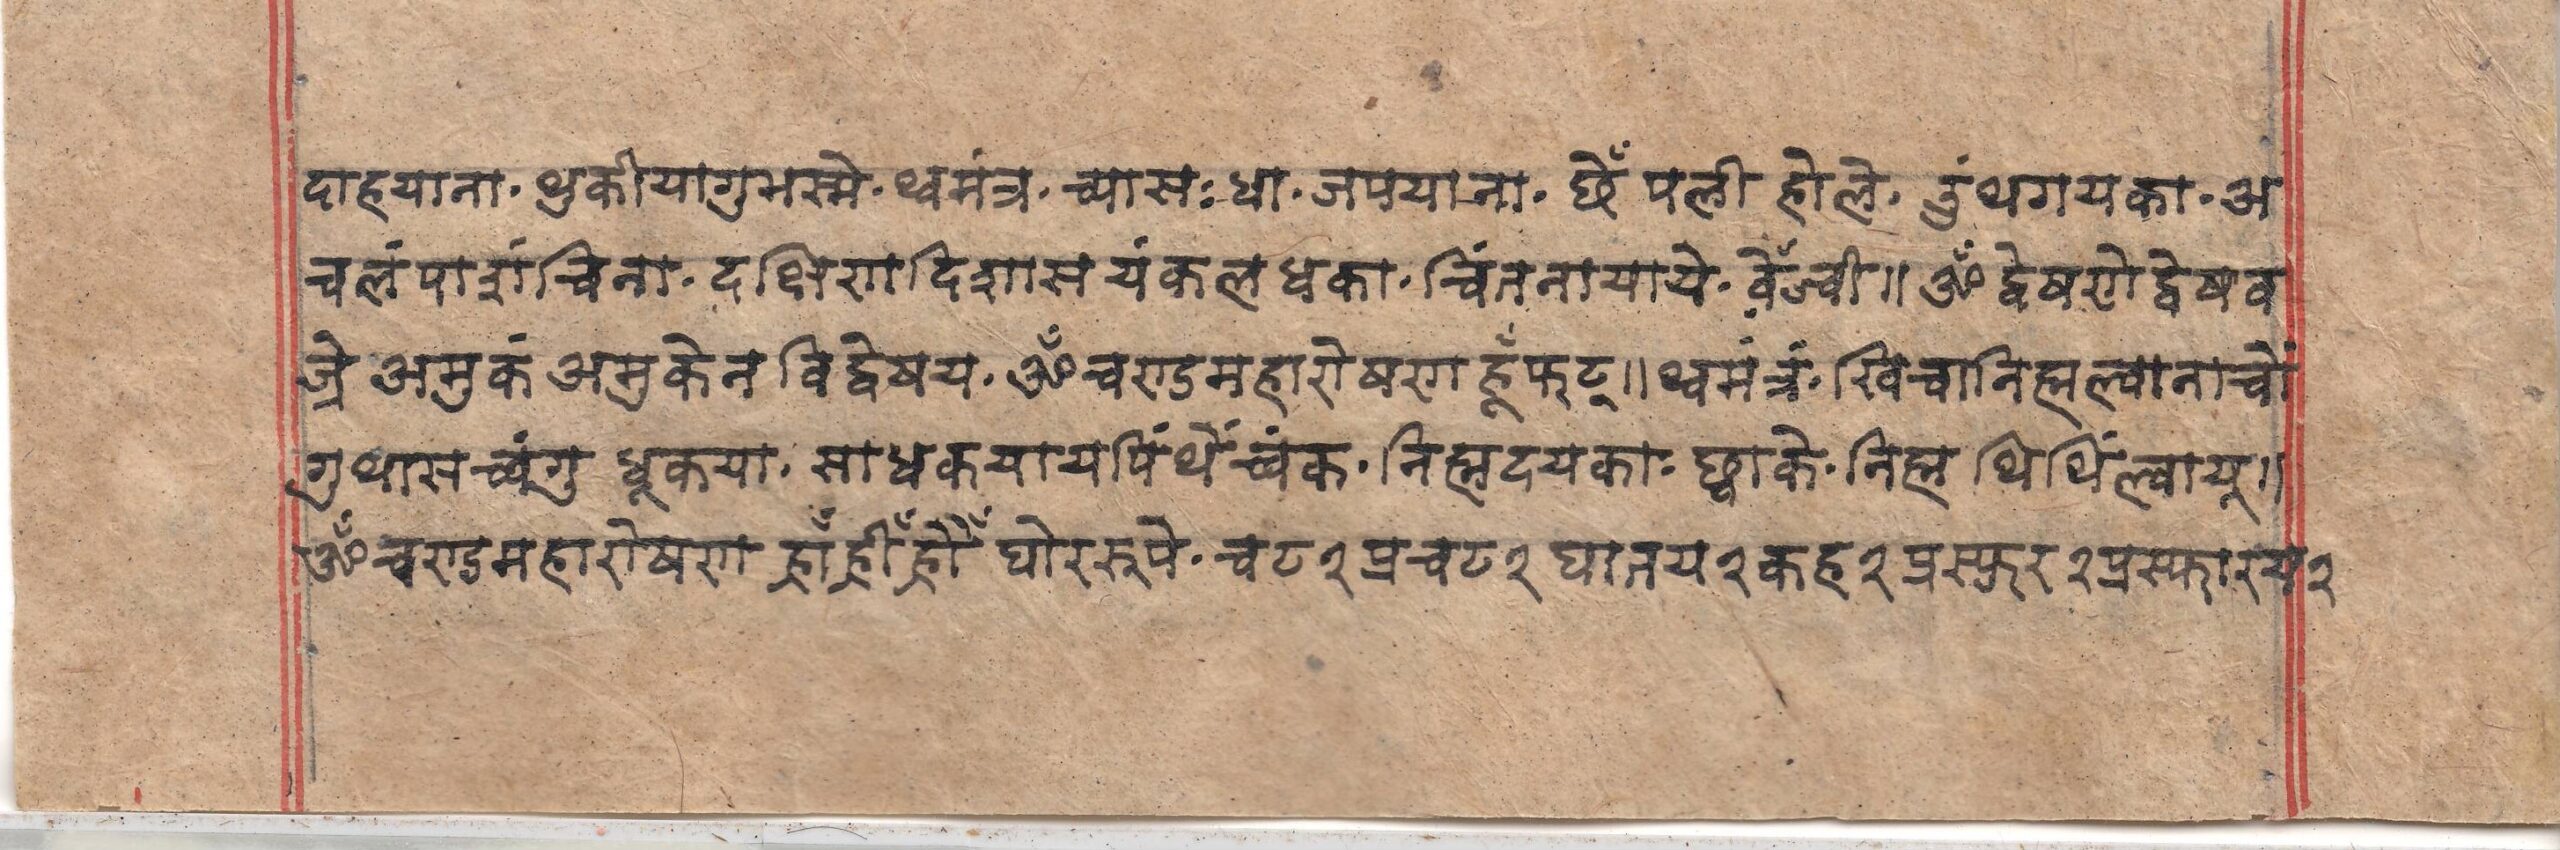 दाहयाना· थुकीयागुभस्मे· थ्वमंत्र· च्यासः धा· जपयाना· छेँ पली होले· दुंथगयका· अ
चलं पाशंचिना· दक्षिणदिशास यंकल धका· चिंतनायाये· बेँज्वी॥ ॐ द्वेषणे द्वेषव
ज्रे अमुकं अमुकेन विद्वेषय· ॐ चण्डमहारोषण हूँ फट्॥ थ्वमंत्रं· खिचानिह्मल्वानाचों
गुथास च्वंगु धूकया· साधकयायपिंथेँच्वंक· निह्मदयका· छ्वाके· निह्म थिथिंल्वायू॥
ॐ चण्डमहारोषण ह्राँ ह्रीँ ह्रौँ घोररूपे· चट२ प्रचट२ घातय२ कह२ प्रस्फुर२ प्रस्फारय२